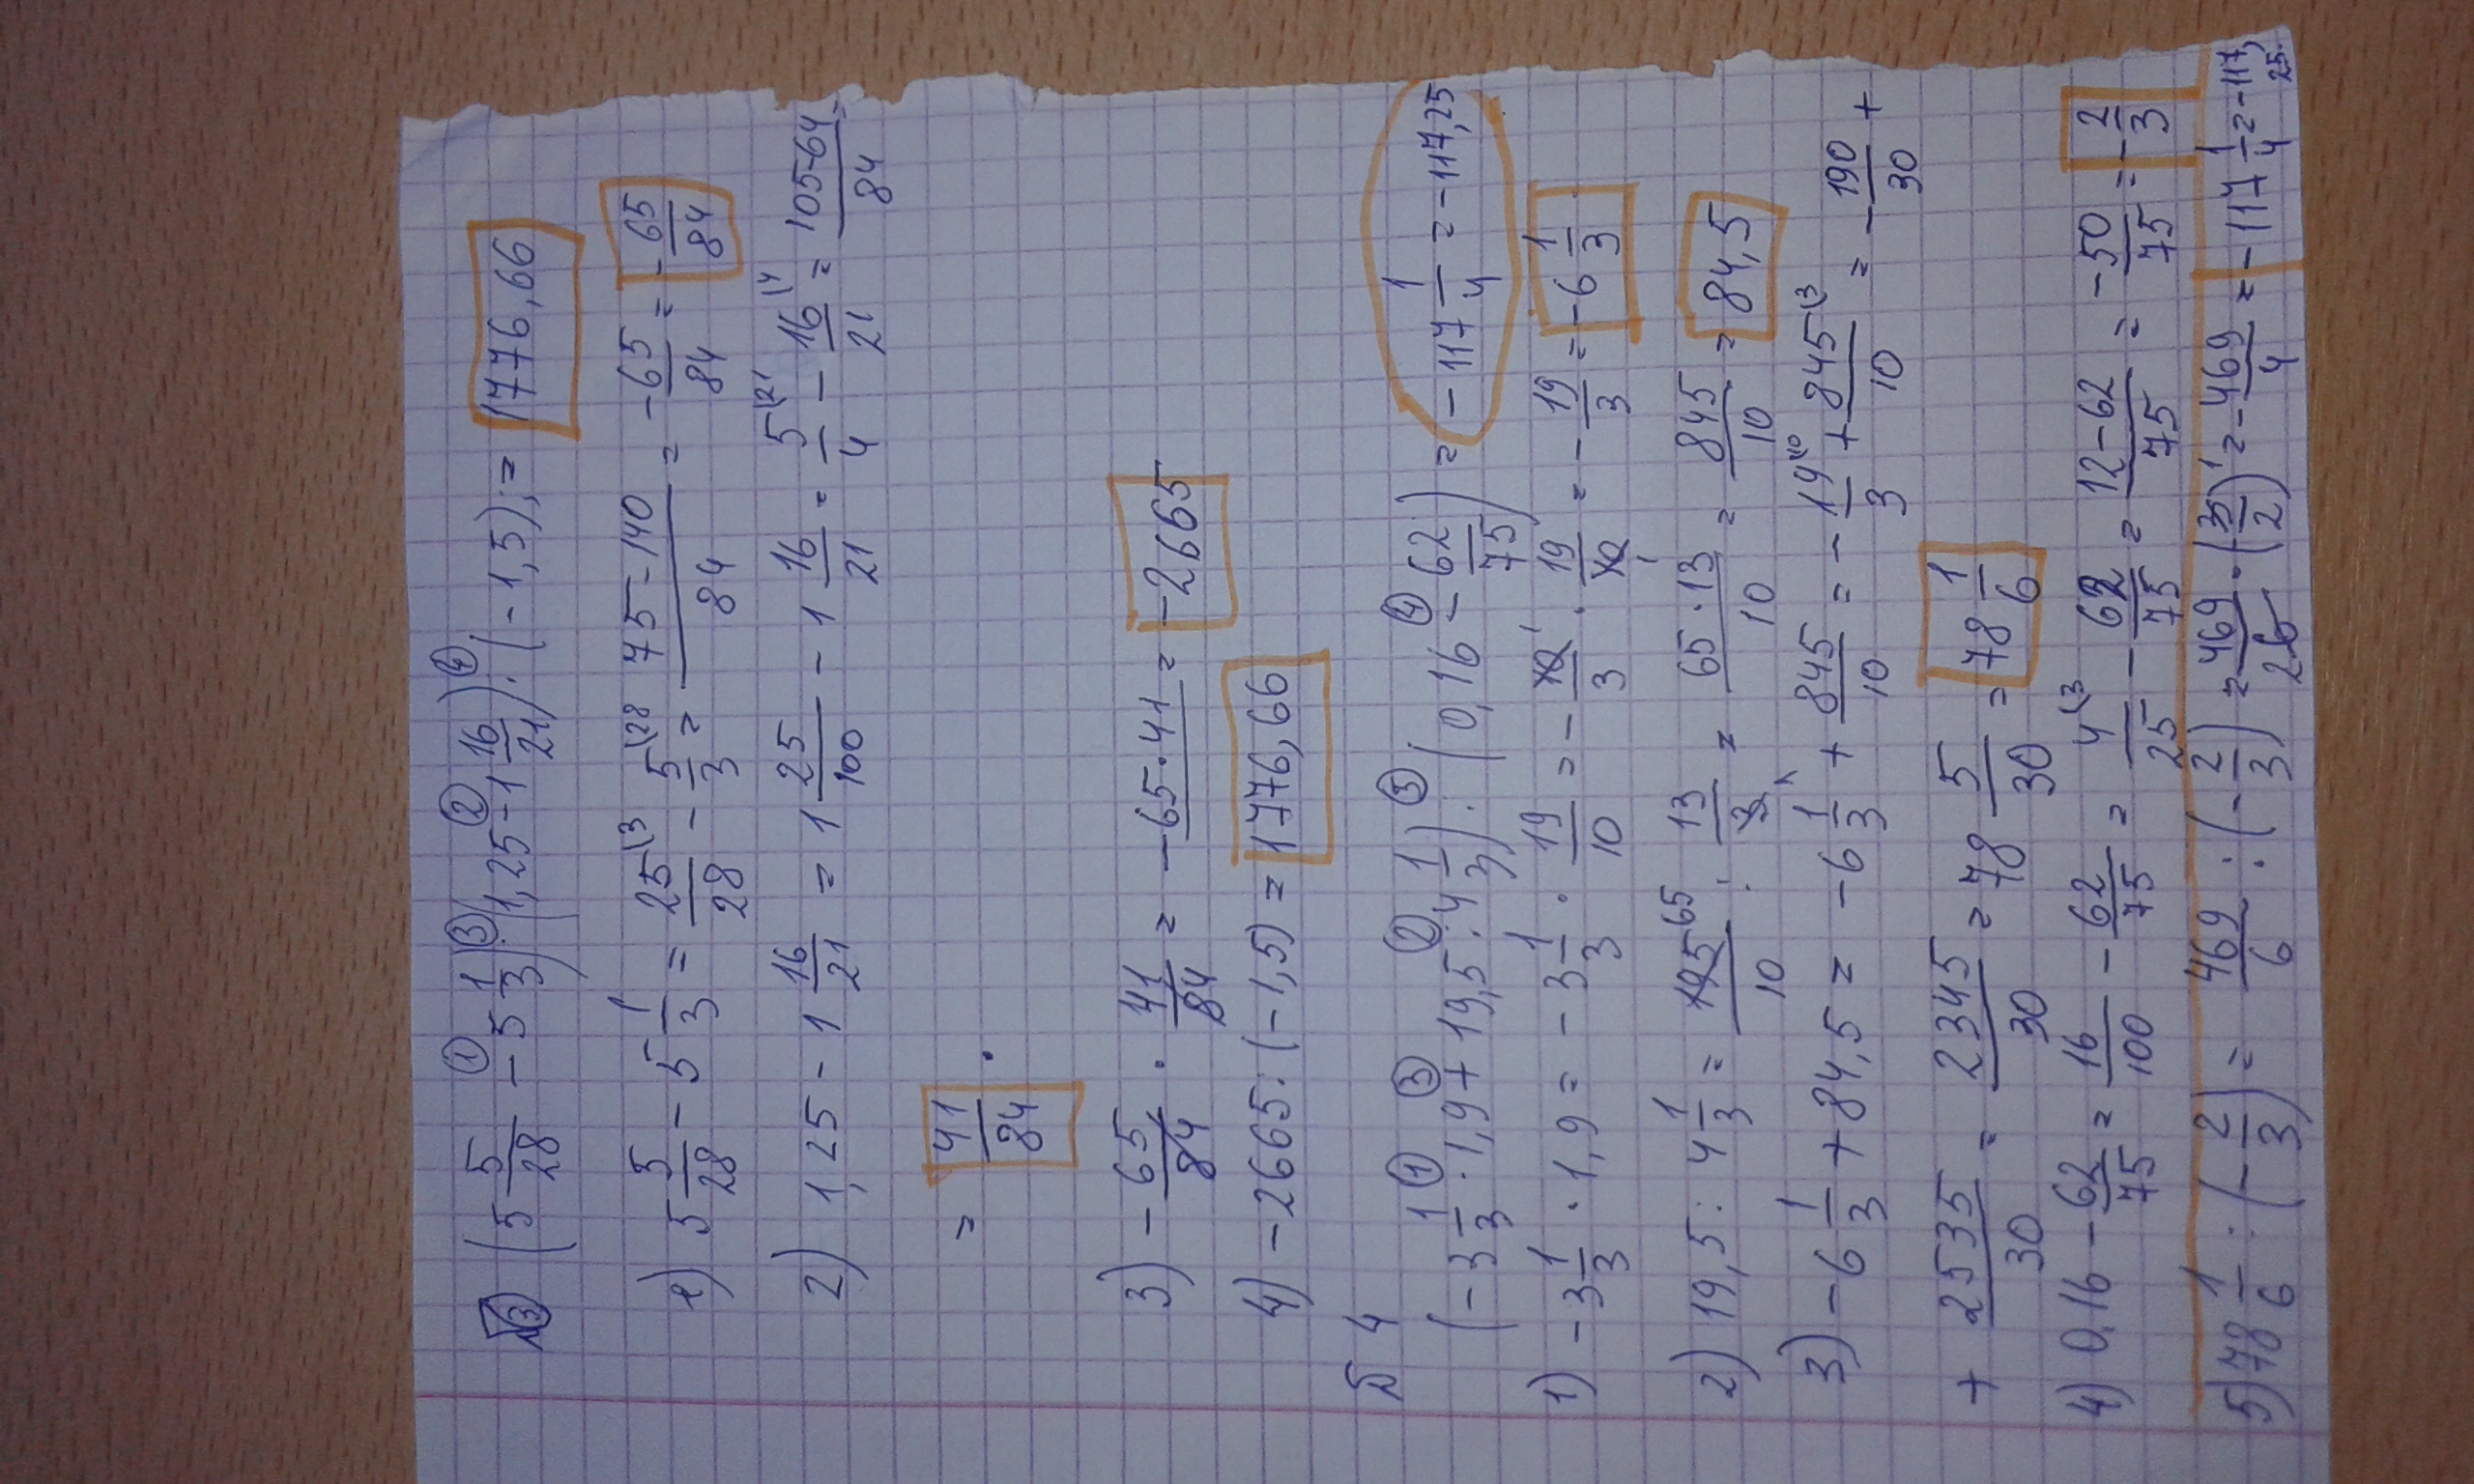 №3 (5 5/28 - 5 1/3) : (1,25 - 1 16/21) : (-1,5); = 1776,66
1) 5 5/28 - 5 1/3 = 25/28 - 5/3 = 75-140/84 = -65/84 = -65/84
2) 1,25 - 1 16/21 = 1 25/100 - 1 16/21 = 5/4 - 16/21 = 105-64/84 =
= 41/84
3) -65/84 · 41/84 = -65·41 = -2665
4) -2665 : (-1,5) = 1776,66
№ 4
(-3 1/3 · 1,9 + 19,5 : 4 1/3) : (0,16 - 62/75) = -117 1/4 = -117,25
1) -3 1/3 · 1,9 = -3 1/3 · 19/10 = -10/3 · 19/10 = -19/3 = -6 1/3
2) 19,5 : 4 1/3 = 195/10 : 13/3 = 65·13/10 = 845/10 = 84,5
3) -6 1/3 + 84,5 = -6 1/3 + 845/10 = -19/3 + 845/10 = -190/30 +
+ 2535/30 = 2345/30 = 78 5/30 = 78 1/6
4) 0,16 - 62/75 = 16/100 - 62/75 = 4/25 - 62/75 = 12-62/75 = -50/75 = -2/3
5) 78 1/6 : (-2/3) = 469/6 : (-2/3) = 469/6 · (3/2) = -469/4 = -117 1/4 = -117,25.